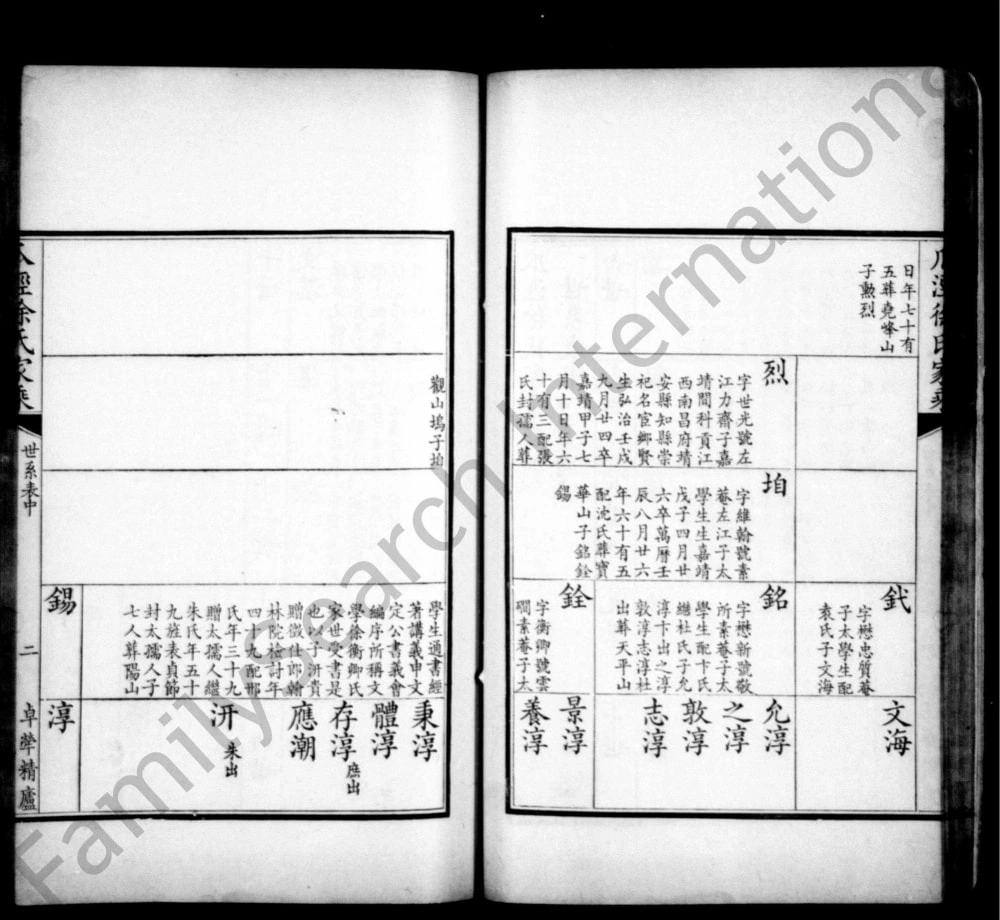 日年七十有
五葬堯峰山
子勲烈
烈
字世光號左
江力齋子嘉
靖間科貢江
西南昌府靖
安縣知縣崇
祀名宦鄉賢
生弘治壬戌
九月廿四卒
嘉靖甲子七
月十日年六
十有三配張
氏封孺人葬
觀山塢子
字維翰號素
菴左江子太
學生生嘉靖
戊子四月廿
六卒萬曆壬
辰八月廿六
年六十有五
配沈氏葬寶
華山子銘銓
錫
字懋忠質菴
子太學生配
袁氏子文海
銘
字懋新號敬
所素菴子太
學生配卞氏
繼杜氏子允
淳卞出之淳
敦淳志淳杜
出葬天平山
銓
字衡卿號雲
磵素菴子太
學生適書經
著講義申文
定公書義會
編序所稱文
學徐衡卿氏
家世受書是
也以子汧貴
贈徵仕郎翰
林院檢討年
四十九配邢
氏年三十九
贈太孺人繼
朱氏年五十
九旌表貞節
封太孺人子
七人葬陽山
錫
文海
允淳
之淳
敦淳
志淳
景淳
養淳
秉淳
體淳
存淳 庶出
應潮
汧 朱出
淳
徐氏家乘
世系表中
二
卓犖精廬
FamilySearch International